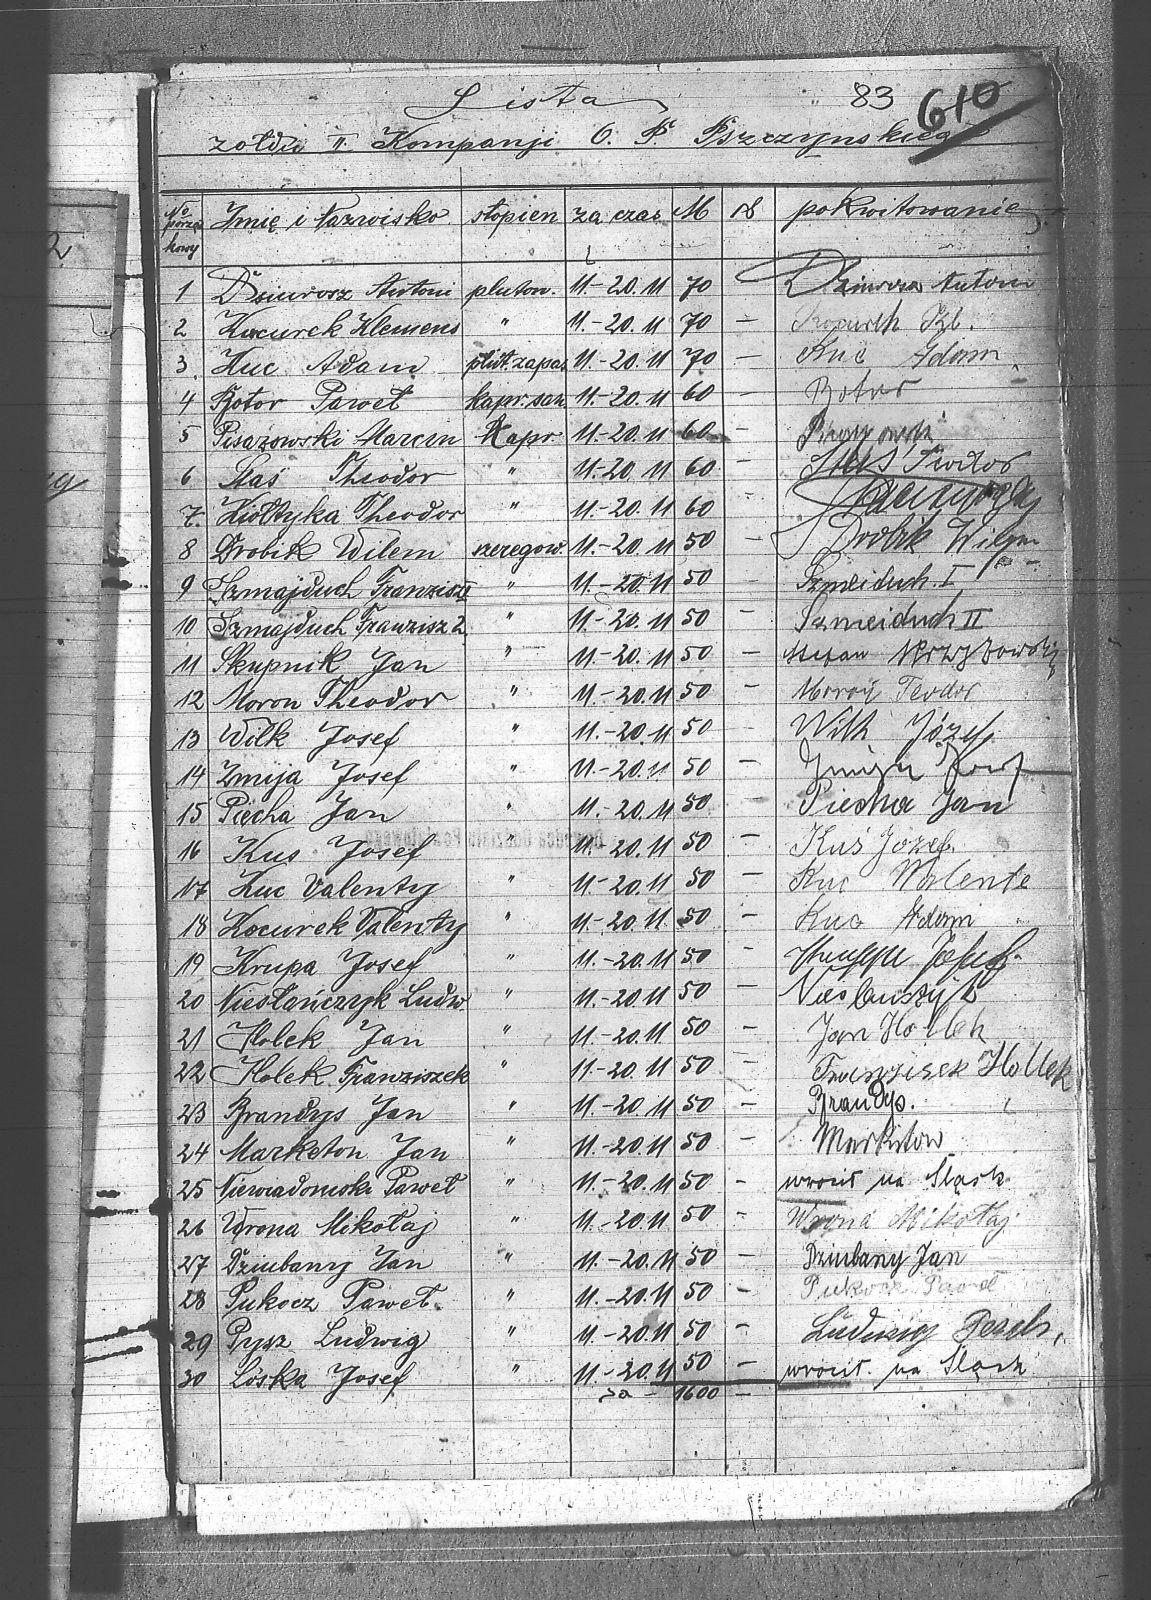 Lista 83 610
żołdu II Kompanji O. P. Pszczyńskiego
No porządkowy Imię i Nazwisko stopien za czas M pokwitowanie
1 Dziurosz Antoni pluton. 11-20.11 70 Dziurosz Antoni
2 Kucurek Klemens " 11.-20.11 70 - Kl.
3. Kuc Adam plut. zapas 11-20.11 70 - Kuc Adam
4 Botor Paweł kapr. san. 11.-20.11 60 - Botor
5 Pisarzowski Marcin Kapr 11-20.11 60 -
6 Staś Theodor " 11.-20.11 60 - Staś Teodor
7. Ziottyka Theodor " 11.-20.11 60 -
8 Drobik Wilem szeregow. 11.-20.11 50 - Drobik Wilem
9 Szmajduch Franzisz " 11.-20.11 50 - Szmeiduch. I
10 Szmajduch Franzisz 2. " 11.-20.11 50 - Szmeiduch II
11 Skupnik Jan " 11.-20.11 50 - Stefan
12 Moron Theodor " 11.-20.11 50 - Moroń Teodor
13 Wilk Josef " 11.-20.11 50 - Wilk Józef
14 Zmija Josef " 11.-20.11 50 -
15 Piecha Jan " 11.-20.11 50 - Piecha Jan
16 Kus Josef " 11.-20.11 50 - Kuś Józef.
17 Kuc Valenty " 11-20.11 50 - Kuc Walente
18 Kocurek Valenty " 11-20.11. 50 - Kuc Adam
19 Krupa Josef " 11.-20.11 50 - Krupa Josef.
20 Niesłańczyk Ludw. " 11.-20.11 50 -
21 Holek Jan " 11.-20.11 50 - Jan Hollek
22 Holek Franziszek " 11-20.11 50 - Franzisek Hollek
23 Brandys Jan " 11.-20.11 50 - Brandys.
24 Marketon Jan " 11.-20.11 50 -
25 Niewiadomski Paweł " 11.-20.11 50 - wrócił na Śląsk
26 Wrona Mikołaj " 11.-20.11 50 - Wrona Mikołaj
27 Dziubany Jan " 11.-20.11 50 - Dziubany Jan
28 Pukocz Paweł. " 11.-20.11 50 - Pukocz Paweł
29 Pysz Ludwig " 11.-20.11 50 - Ludwig
30 Loska Josef " 11-20.11 50 - wrócił na Śląsk
za - 1600 -